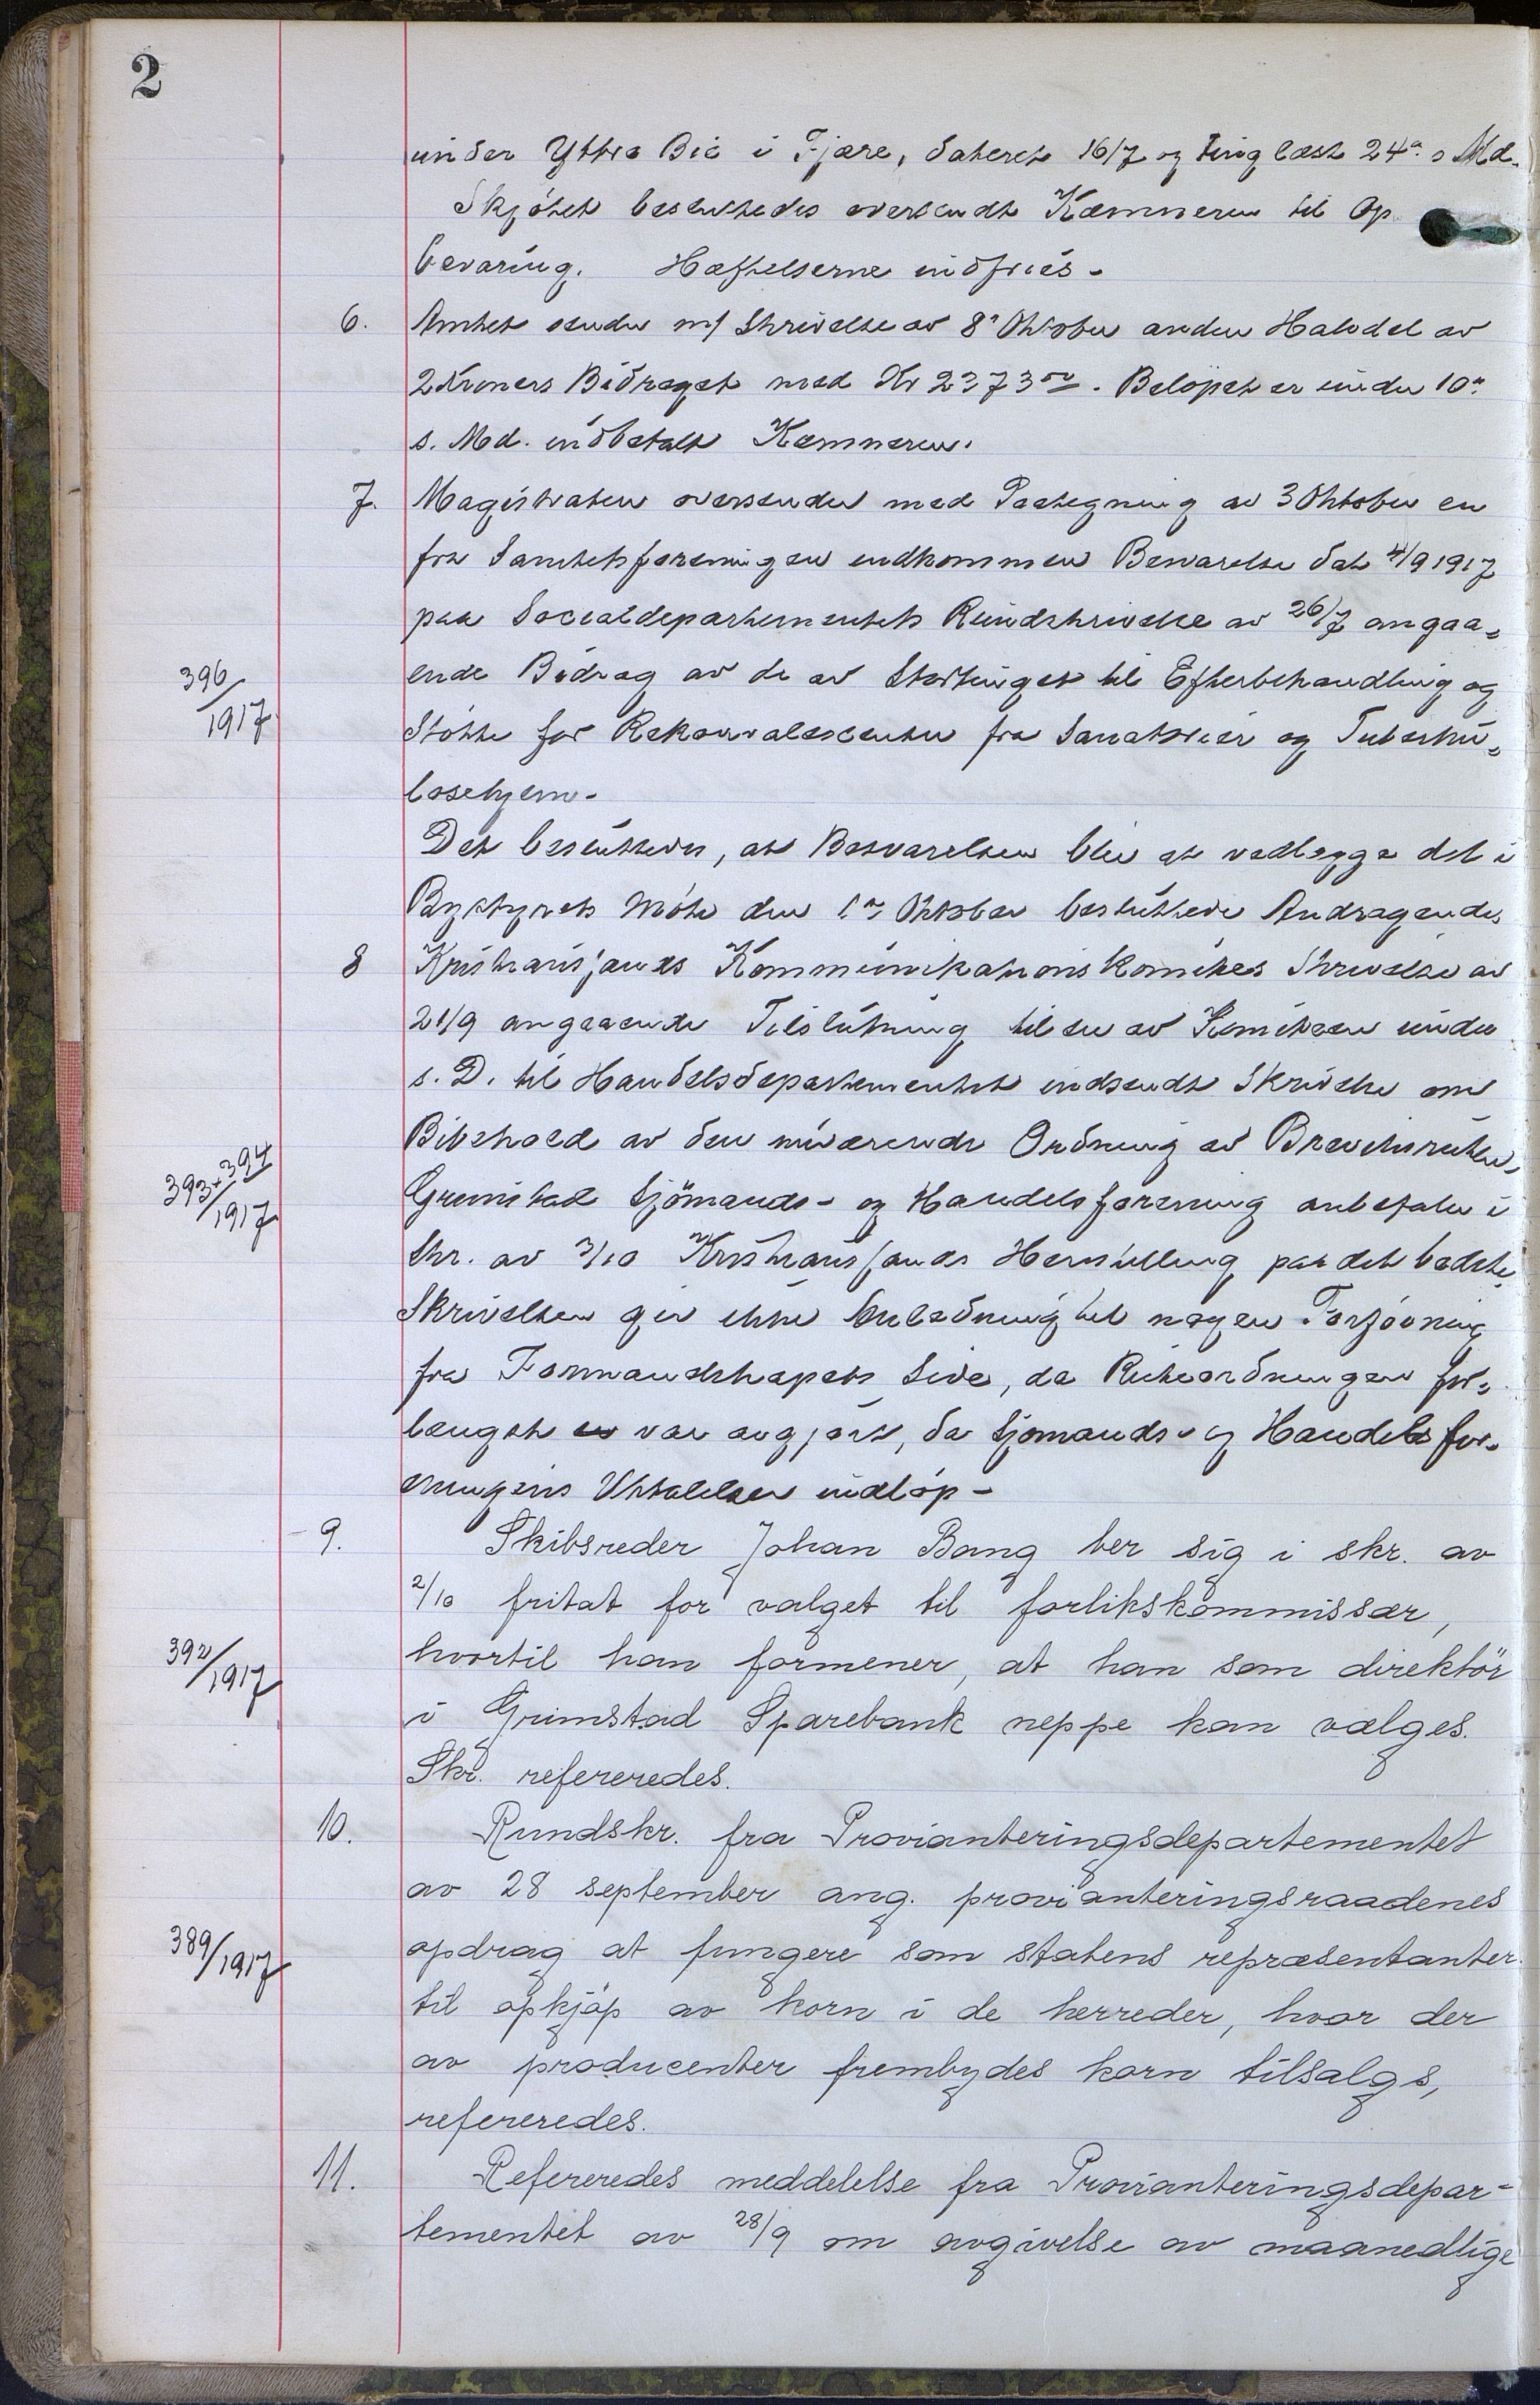 2
under Yttre Bie i Fjære, dateret 16/7 og tinglæst 24de s Md.
Skjøtet besluttedes oversendt Kæmneren til Op
bevaring. Hæftelserne indfries -
6. Amtet sender m/ Skrivelse av 8de Oktober anden Halvdel av
2 Kroners Bidraget med Kr 2373 00. Beløpet er under 10de
s. Md. indbetalt Kæmneren.
7. Magistraten oversender med Paategning av 3 Oktober en
fra Sanitetsforeningen indkommen Besvarelse dat 4/9 1917
paa Socialdepartementets Rundskrivelse av 26/7 angaa=
396/1917
ende Bidrag av de av Stortinget til Efterbehandling og
Støtte for Rekonvalescenter fra Sanatorier og Tuberku=
losehjem -
Det besluttedes, at Besvarelsen blir at vedlægge det i
Bystyrets Møte den 1ste Oktober besluttede Andragende
8 Kristiansands Kommunikationskomites Skrivelse av
21/9 angaaende Tilslutning til en av Komiteen under
s. D. til Handelsdepartementet indsendt Skrivelse om
Bibehold av den nuværende Ordning av Breviksruten,
393+394/1917
Grimstad Sjømands- og Handelsforening anbefaler i
Skr. av 3/10 Kristiansands Henstilling paa det bedste,
Skrivelsen gir ikke Anledning til nogen Forføining
fra Formandskapets Side, da Ruteordningen for=
længst er var avgjort, da Sjømands- og Handelsfor=
eningens Uttalelser indløp -
9. Skibsreder Johan Bang ber sig i skr. av
2/10 fritat for valget til forlikskommissær,
392/1917
hvortil han formener, at han som direktör
i Grimstad Sparebank neppe kan vælges.
Skr. refereredes.
10. Rundskr. fra Provianteringsdepartementet
av 28 september ang. provianteringsraadenes
389/1917
opdrag at fungere som statens repræsentanter
til opkjøp av korn i de herreder, hvor der
av producenter frembydes korn tilsalgs,
refereredes.
11. Refereredes meddelelse fra Provianteringsdepar-
tementet av 28/9 om avgivelse av maanedlige